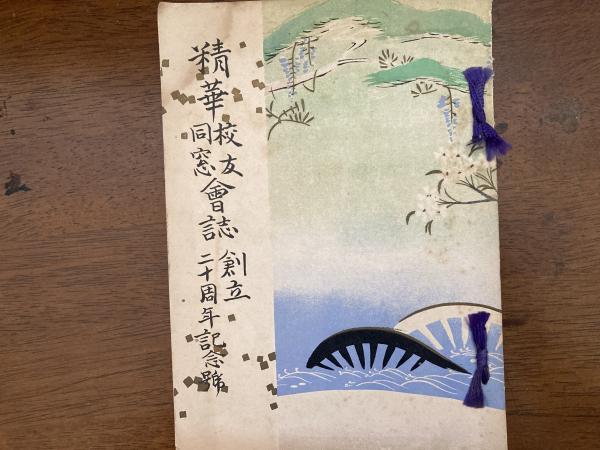 精華校友同窓會誌
創立二十周年記念號